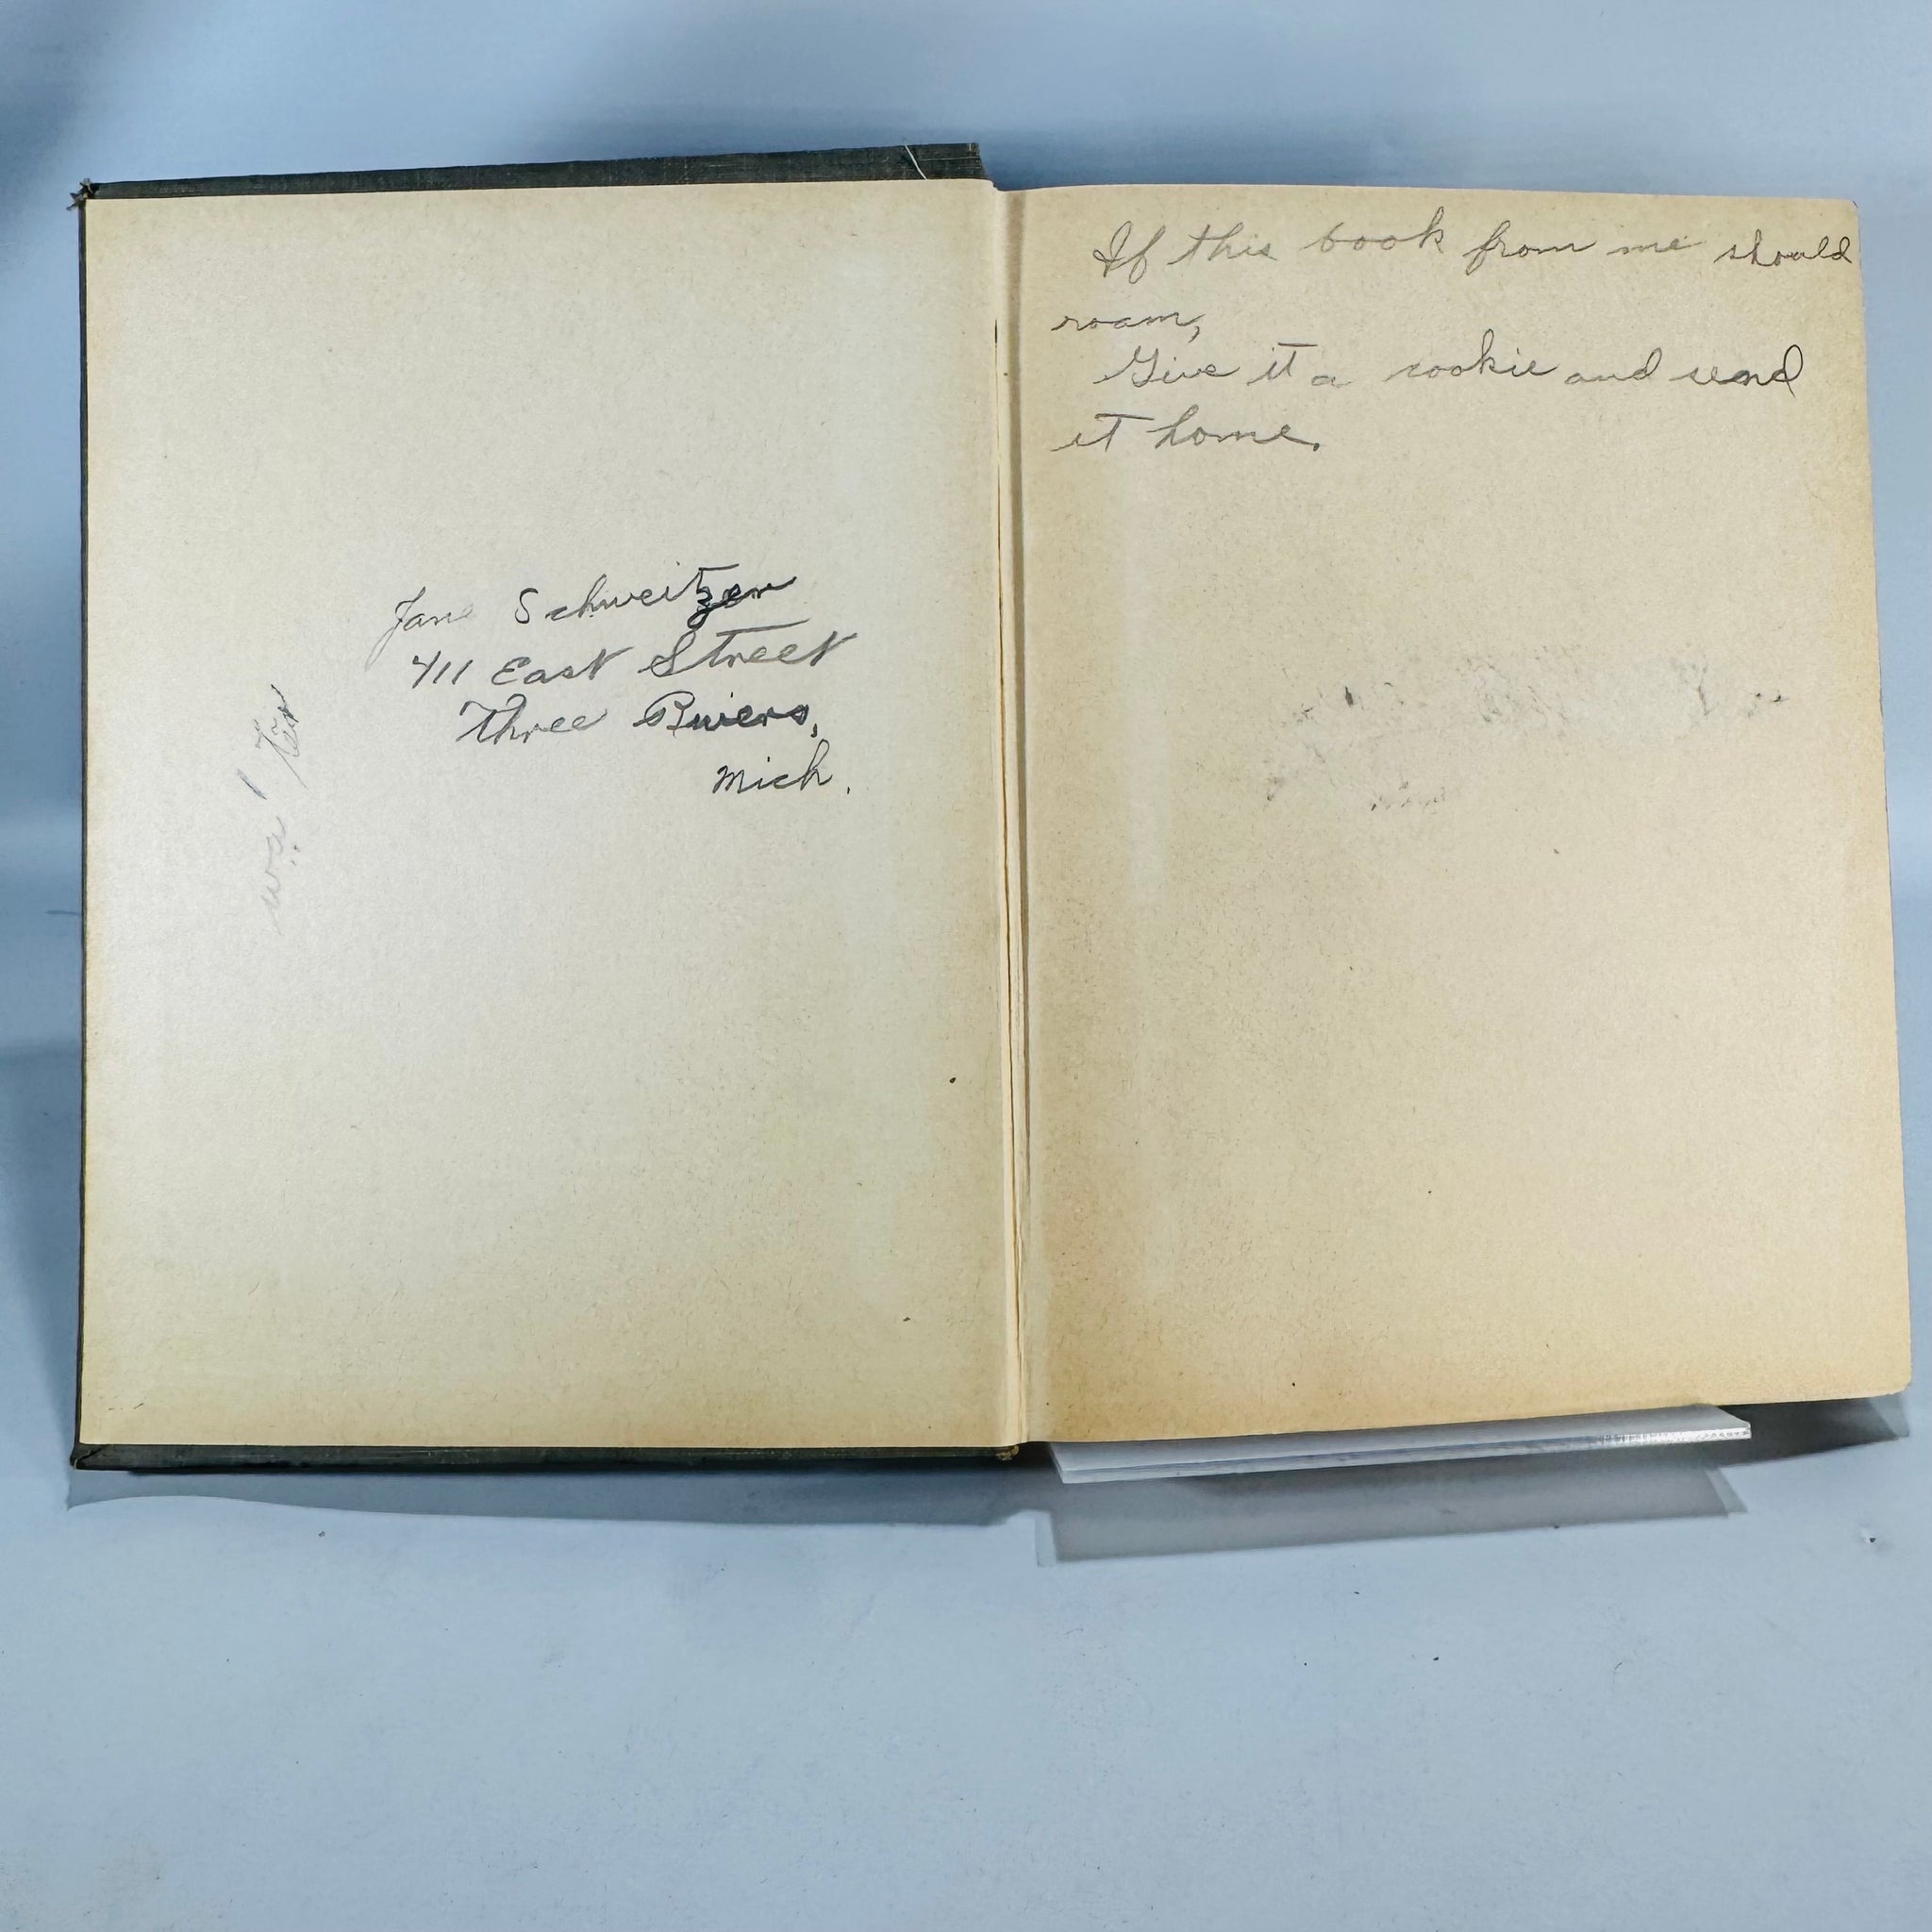 Jane Schweitzer
411 East Street
Three Rivers,
Mich.
If this book from me should
roam,
Give it a cookie and send
it home.